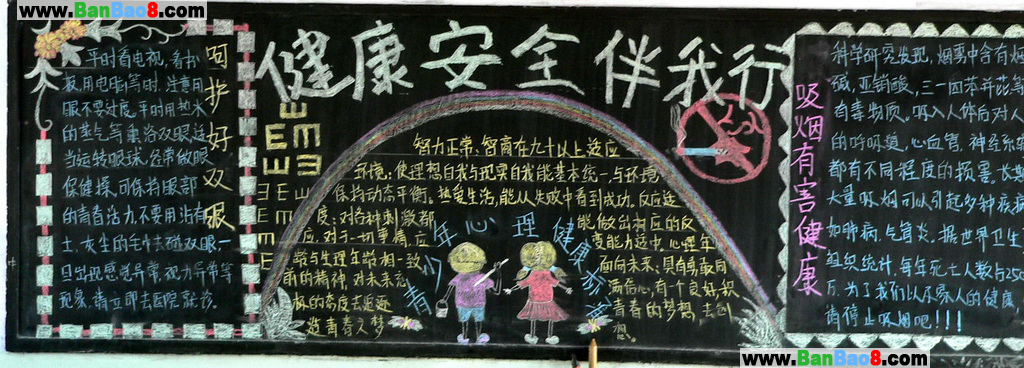 www.BanBao8.com
健康安全伴我行
呵护好双眼
平时看电视,看书
板,用电脑等时,注意用
眼不要过度。平时用热水
的蒸气等熏浴双眼,适
当运转眼球,经常做眼
保健操,可保持眼部
的青春活力。不要用沾有
士、女生的毛巾去碰双眼。一
旦出现感觉异常、视力异常等
现象,请立即去医院就诊。
E
E E m
E m
E E m
青少年心理健康标准
智力正常:智商在九十以上适应
环境:使理想自我与现实自我能基本统一,与环境
保持动态平衡。热爱生活,能从失败中看到成功,反应适
度:对各种刺激都能做出相应的反
应,对于一切事情,应变能力适中,心理年
龄与生理年龄相一致,面向未来:具有勇敢向
前的精神,对未来充满信心,有一个良好,积
极的态度去追逐青春的梦想,去创
造青春之梦想。
吸烟有害健康
科学研究发现,烟雾中含有烟
碱、亚硝酸、三—四苯并芘等
有毒物质。吸入人体后对人
的呼吸道、心血管、神经系统
都有不同程度的损害。长期
大量吸烟可以引起多种疾病
如肺病、气管炎。据世界卫生
组织统计,每年死亡人数与250
万。为了我们以及家人的健康
请停止吸烟吧!!!
www.BanBao8.com
www.BanBao8.com